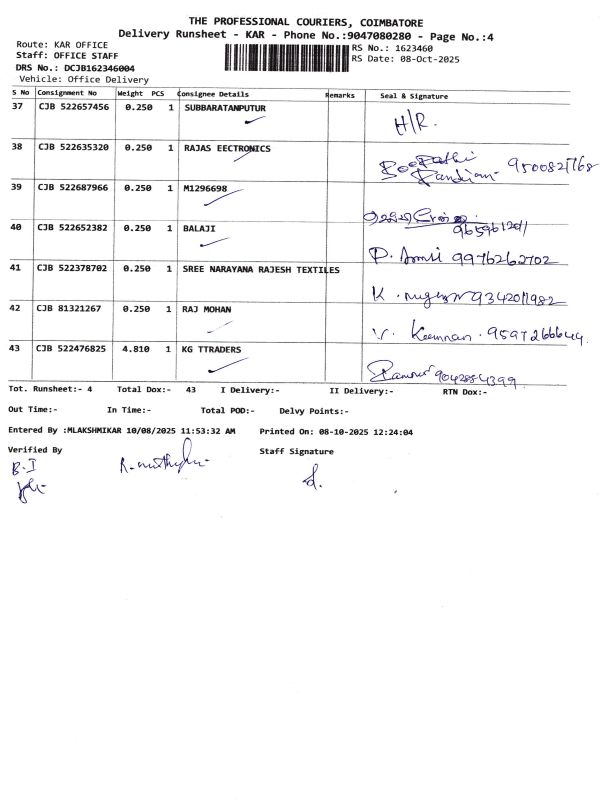 THE PROFESSIONAL COURIERS, COIMBATORE
Delivery Runsheet - KAR - Phone No.:9047080280 - Page No.:4
Route: KAR OFFICE
Staff: OFFICE STAFF
DRS No.: DCJB162346004
Vehicle: Office Delivery
RS No.: 1623460
RS Date: 08-Oct-2025
S No Consignment No Weight PCS Consignee Details Remarks Seal & Signature
37 CJB 522657456 0.250 1 SUBBARATANPUTUR H/R.
38 CJB 522635320 0.250 1 RAJAS EECTRONICS 9500821768
39 CJB 522687966 0.250 1 M1296698
40 CJB 522652382 0.250 1 BALAJI 9976262702
41 CJB 522378702 0.250 1 SREE NARAYANA RAJESH TEXTILES 9342011982
42 CJB 81321267 0.250 1 RAJ MOHAN
43 CJB 522476825 4.810 1 KG TTRADERS 9042884399
Tot. Runsheet:- 4 Total Dox:- 43 I Delivery:- II Delivery:- RTN Dox:-
Out Time:- In Time:- Total POD:- Delvy Points:-
Entered By :MLAKSHMIKAR 10/08/2025 11:53:32 AM Printed On: 08-10-2025 12:24:04
Verified By Staff Signature